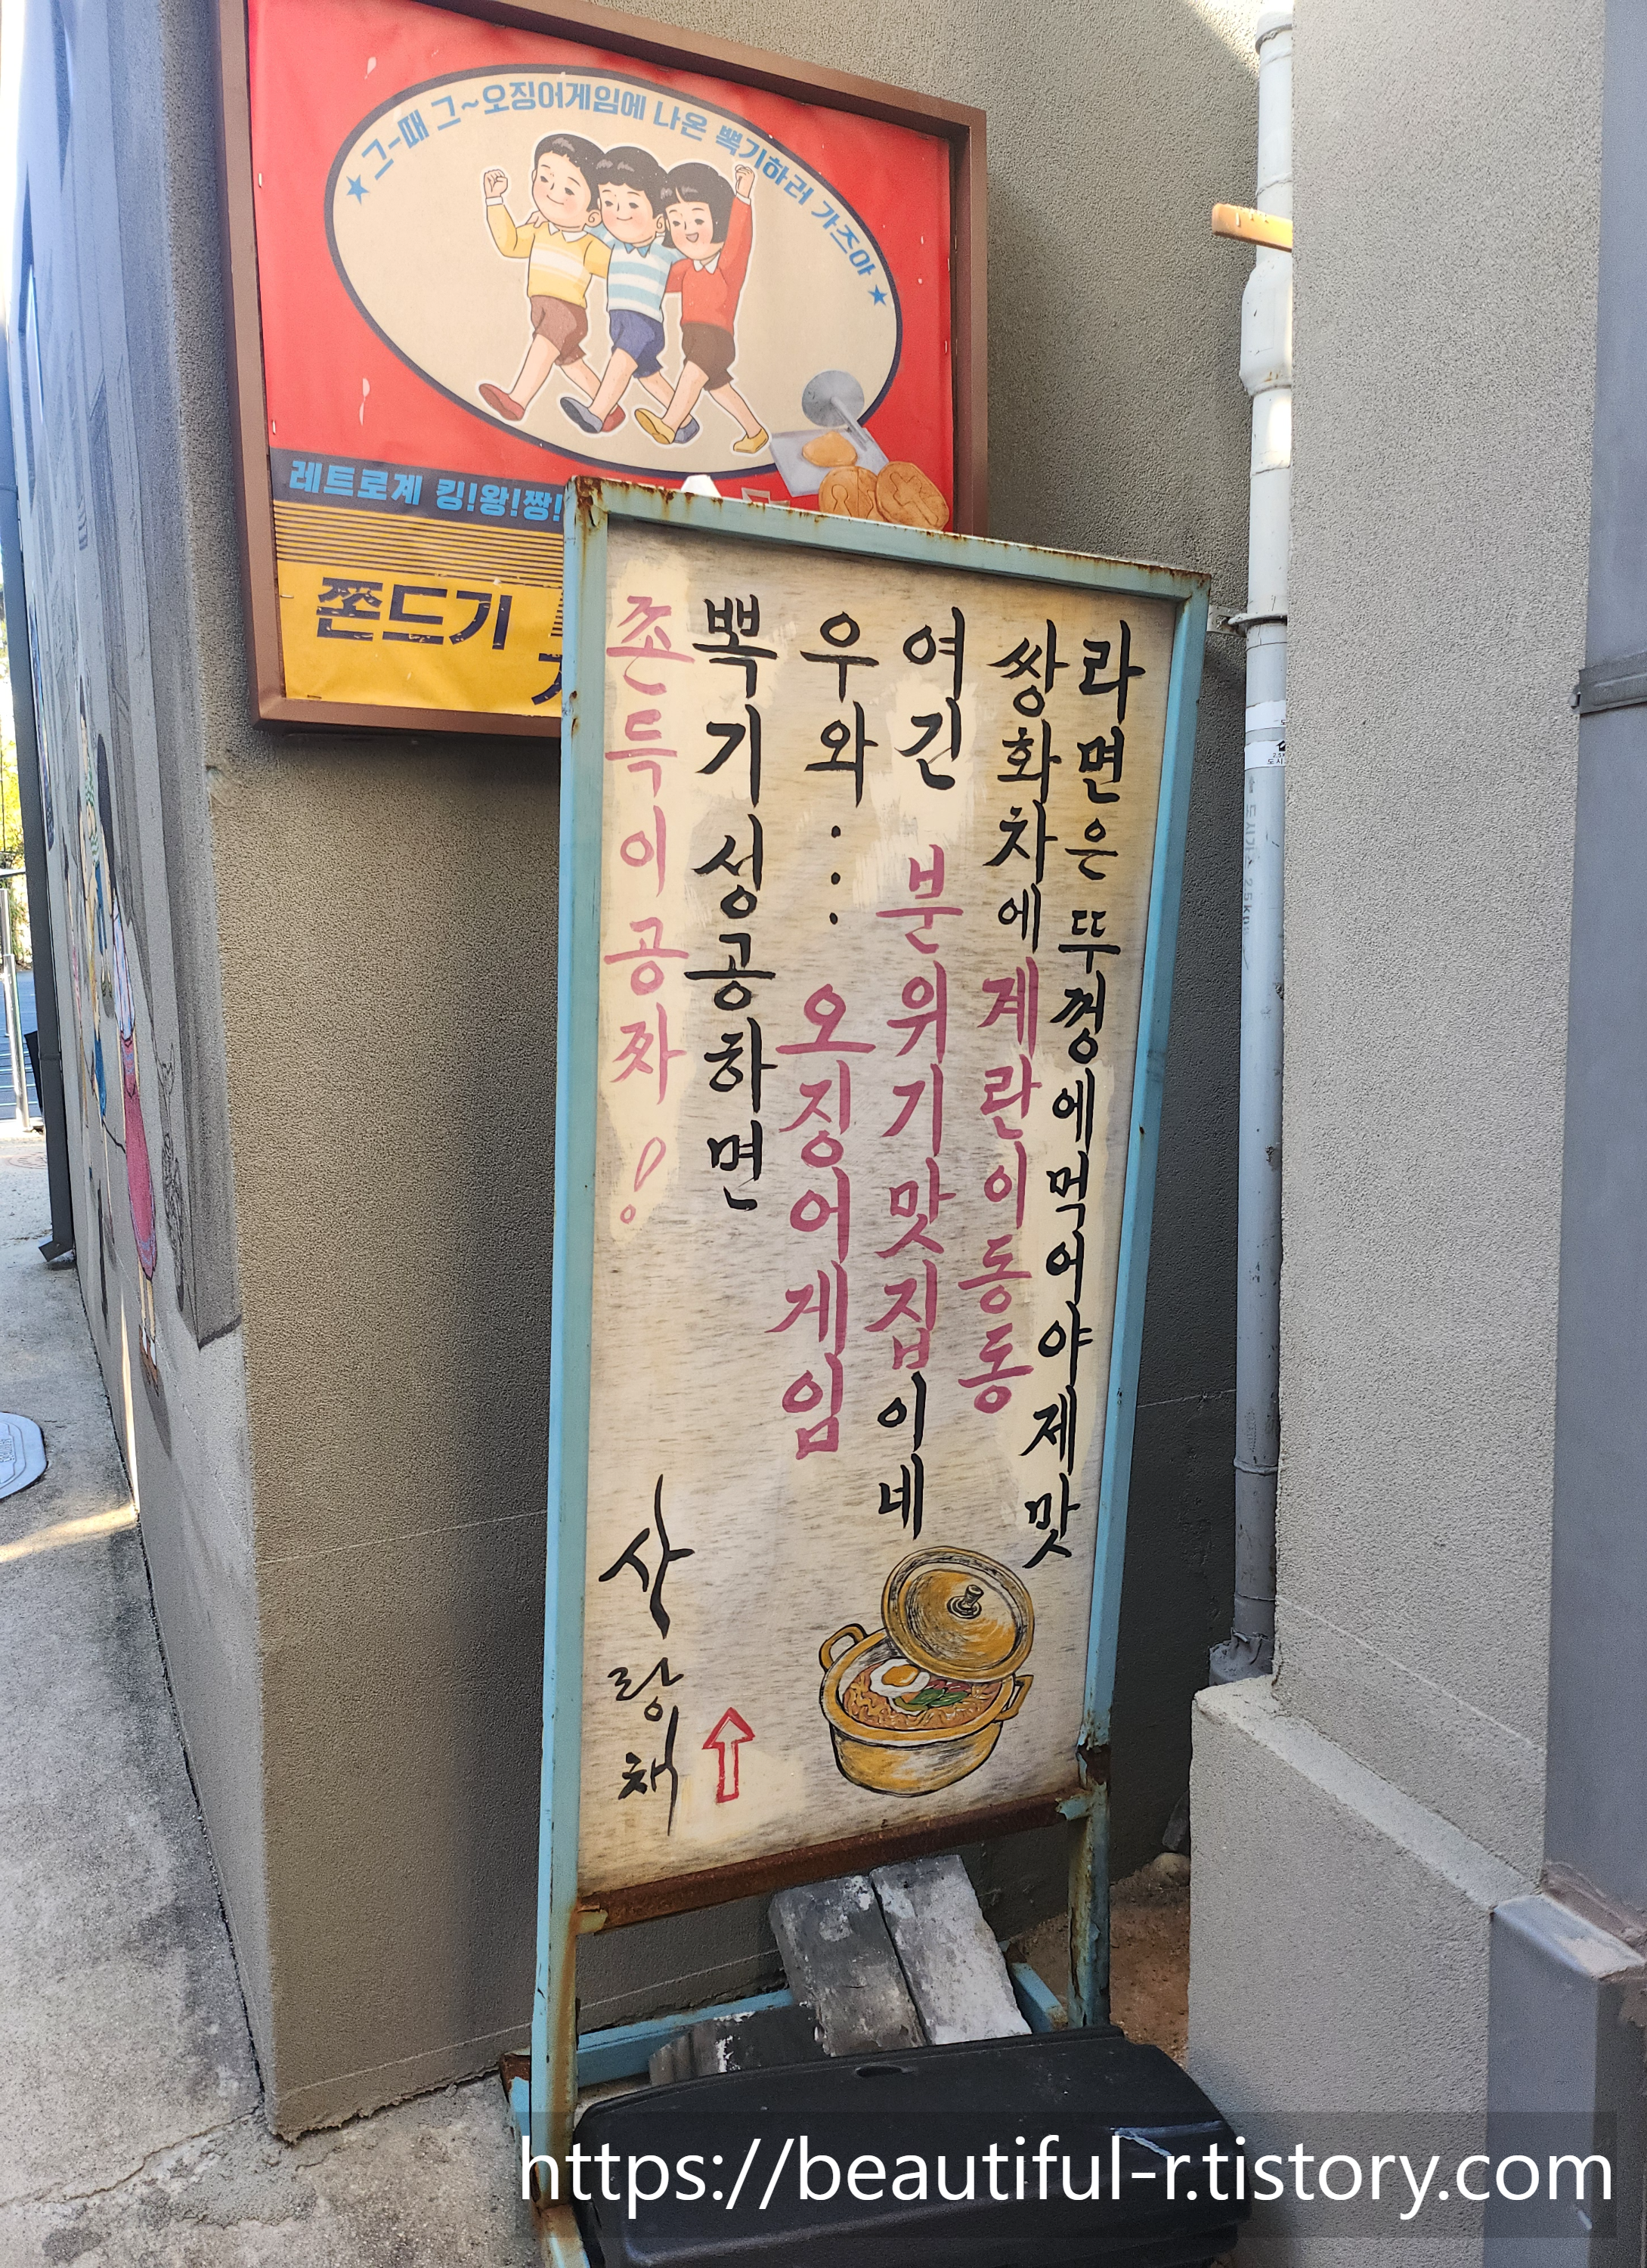 ★ 그-때 그~오징어게임에 나온 뽁기하러 가즈아 ★
레트로계 킹!왕!짱!
쫀드기
라면은 뚜껑에먹어야제맛
쌍화차에계란이동동
여긴 분위기맛집이네
우와... 오징어게임
뽁기성공하면
쫀득이공짜!
사랑채
https://beautiful-r.tistory.com